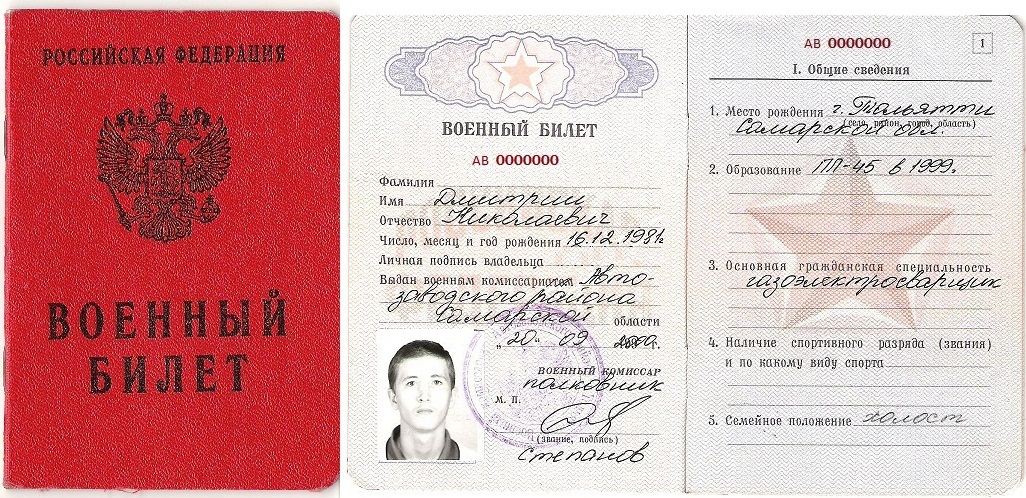 РОССИЙСКАЯ ФЕДЕРАЦИЯ
ВОЕННЫЙ
БИЛЕТ
ВОЕННЫЙ БИЛЕТ
АВ 0000000
Фамилия
Имя Дмитрий
Отчество Николаевич
Число, месяц и год рождения 16.12.1981г
Личная подпись владельца
Выдан военным комиссариатом Авто-
заводского района
Самарской области
„20" 09 2000 г.
ВОЕННЫЙ КОМИССАР
полковник
М. П.
(звание, подпись)
степанов
АВ 0000000
1
I. Общие сведения
1. Место рождения г. Тольятти
(село, район, город, область)
Самарской обл.
2. Образование ПЛ-45 в 1999г.
3. Основная гражданская специальность
газоэлектросварщик
4. Наличие спортивного разряда (звания)
и по какому виду спорта
5. Семейное положение холост